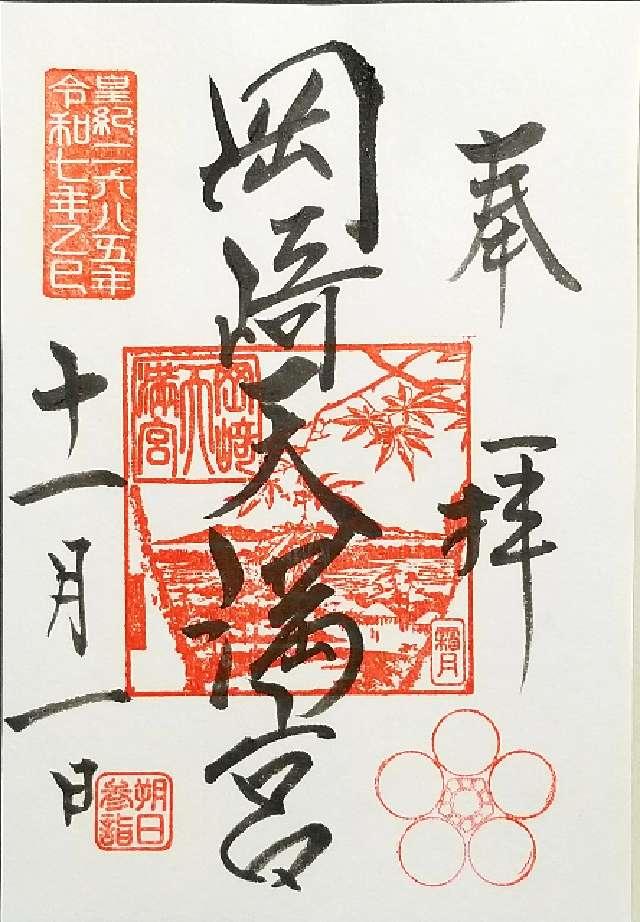 奉拝
岡崎天満宮
岡崎
天
満宮
霜月
皇紀二六八五年
令和七年乙巳
十一月一日
朔日
参詣